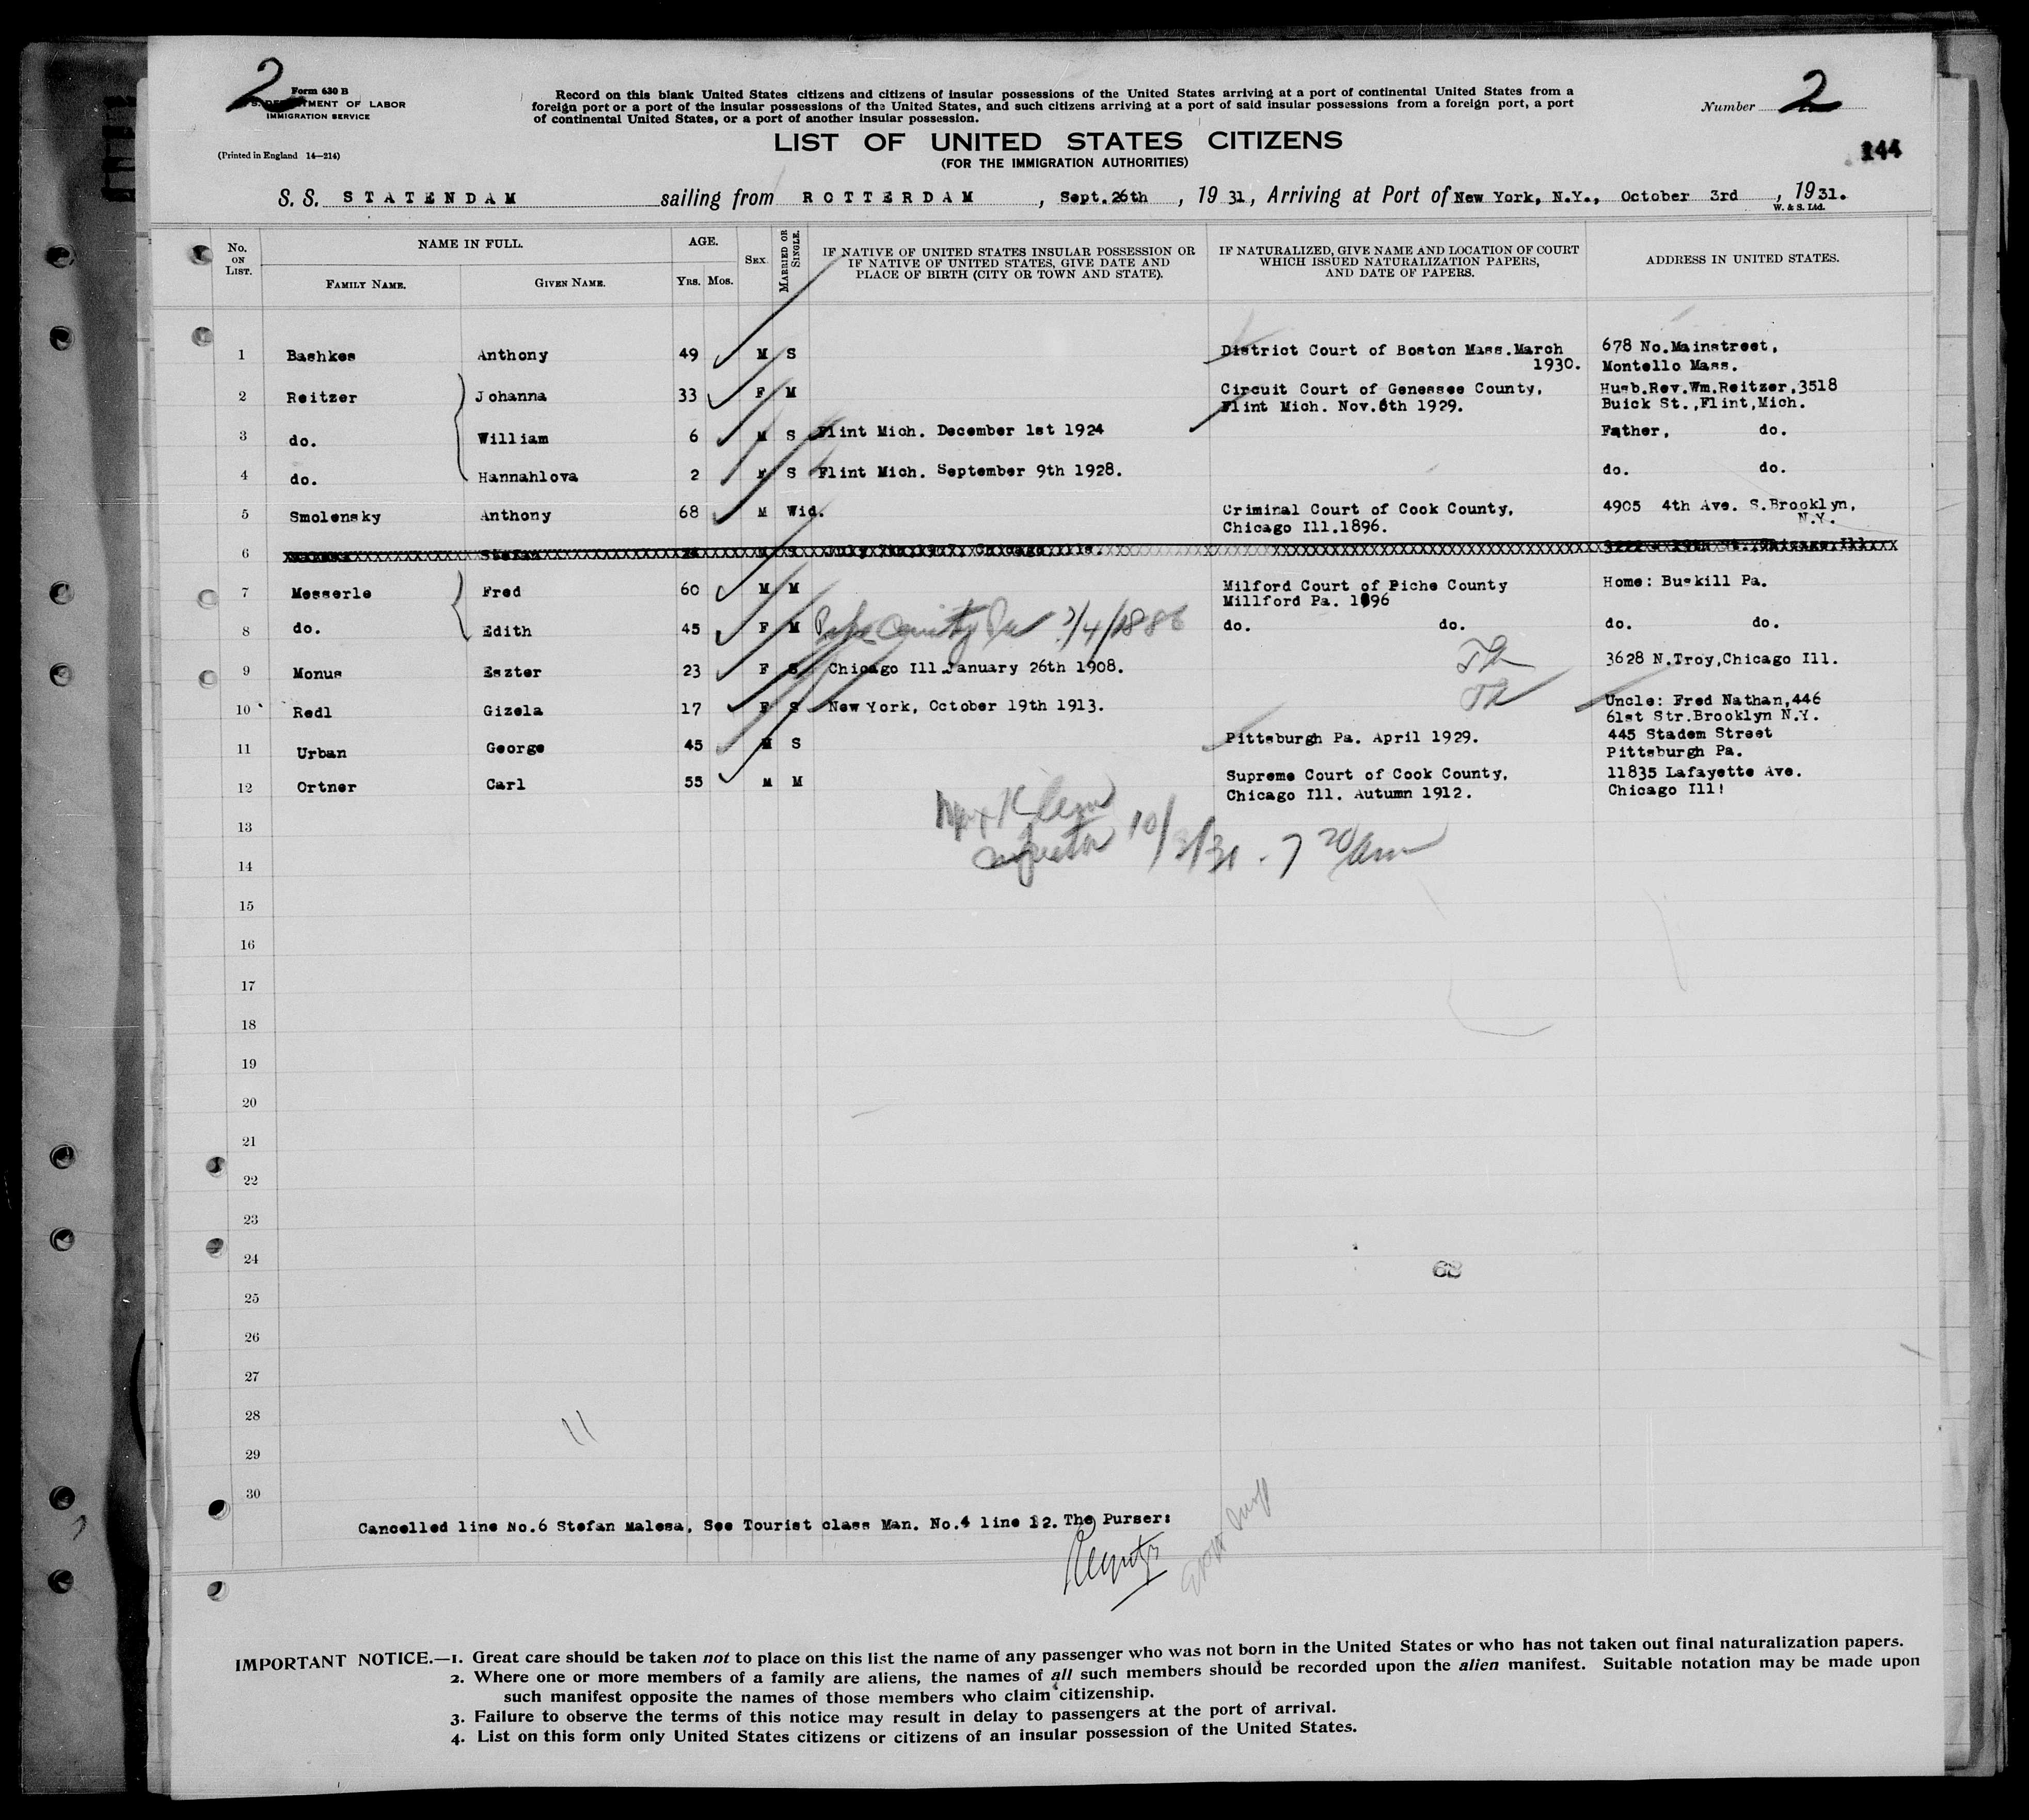 2
2
Form 630 B
U.S. DEPARTMENT OF LABOR
IMMIGRATION SERVICE
(Printed in England 14—214)
Record on this blank United States citizens and citizens of insular possessions of the United States arriving at a port of continental United States from a
foreign port or a port of the insular possessions of the United States, and such citizens arriving at a port of said insular possessions from a foreign port, a port
of continental United States, or a port of another insular possession.
Number
LIST OF UNITED STATES CITIZENS
(FOR THE IMMIGRATION AUTHORITIES)
144
S. S. STATENDAM sailing from ROTTERDAM, Sept. 26th, 1931, Arriving at Port of New York, N.Y., October 3rd, 1931.
W. & S. Ltd.
No. ON LIST. NAME IN FULL. AGE. SEX. MARRIED OR SINGLE. IF NATIVE OF UNITED STATES INSULAR POSSESSION OR IF NATIVE OF UNITED STATES, GIVE DATE AND PLACE OF BIRTH (CITY OR TOWN AND STATE). IF NATURALIZED, GIVE NAME AND LOCATION OF COURT WHICH ISSUED NATURALIZATION PAPERS, AND DATE OF PAPERS. ADDRESS IN UNITED STATES.
FAMILY NAME. GIVEN NAME. YRS. MOS.
1 Bashkes Anthony 49 M S District Court of Boston Mass. March 1930. 678 No. Mainstreet, Montello Mass.
2 Reitzer Johanna 33 F M Circuit Court of Genessee County, Flint Mich. Nov. 6th 1929. Husb. Rev. Wm. Reitzer, 3518 Buick St., Flint, Mich.
3 do. William 6 M S Flint Mich. December 1st 1924 Father, do.
4 do. Hannahlova 2 F S Flint Mich. September 9th 1928. do. do.
5 Smolensky Anthony 68 M Wid. Criminal Court of Cook County, Chicago Ill. 1896. 4905 4th Ave. S. Brooklyn, N.Y.
6 Stefan M S Chicago Ills.
7 Messerle Fred 60 M M Milford Court of Piche County Millford Pa. 1896 Home: Buskill Pa.
8 do. Edith 45 F M Pike County Pa 7/4/1886 do. do. do. do.
9 Monus Eszter 23 F S Chicago Ill. January 26th 1908. 3628 N. Troy, Chicago Ill.
10 Redl Gizela 17 F S New York, October 19th 1913. Uncle: Fred Nathan, 446 61st Str. Brooklyn N.Y.
11 Urban George 45 M S Pittsburgh Pa. April 1929. 445 Stadem Street Pittsburgh Pa.
12 Ortner Carl 55 M M Supreme Court of Cook County, Chicago Ill. Autumn 1912. 11835 Lafayette Ave. Chicago Ill!
13
Inspector 10/3/31 . 7 20/am
14
15
16
17
18
19
20
21
22
23
24
68
25
26
27
28
11
29
30
Cancelled line No. 6 Stefan Malesa, See Tourist class Man. No. 4 line 12. The Purser:
IMPORTANT NOTICE.—1. Great care should be taken not to place on this list the name of any passenger who was not born in the United States or who has not taken out final naturalization papers.
2. Where one or more members of a family are aliens, the names of all such members should be recorded upon the alien manifest. Suitable notation may be made upon
such manifest opposite the names of those members who claim citizenship.
3. Failure to observe the terms of this notice may result in delay to passengers at the port of arrival.
4. List on this form only United States citizens or citizens of an insular possession of the United States.